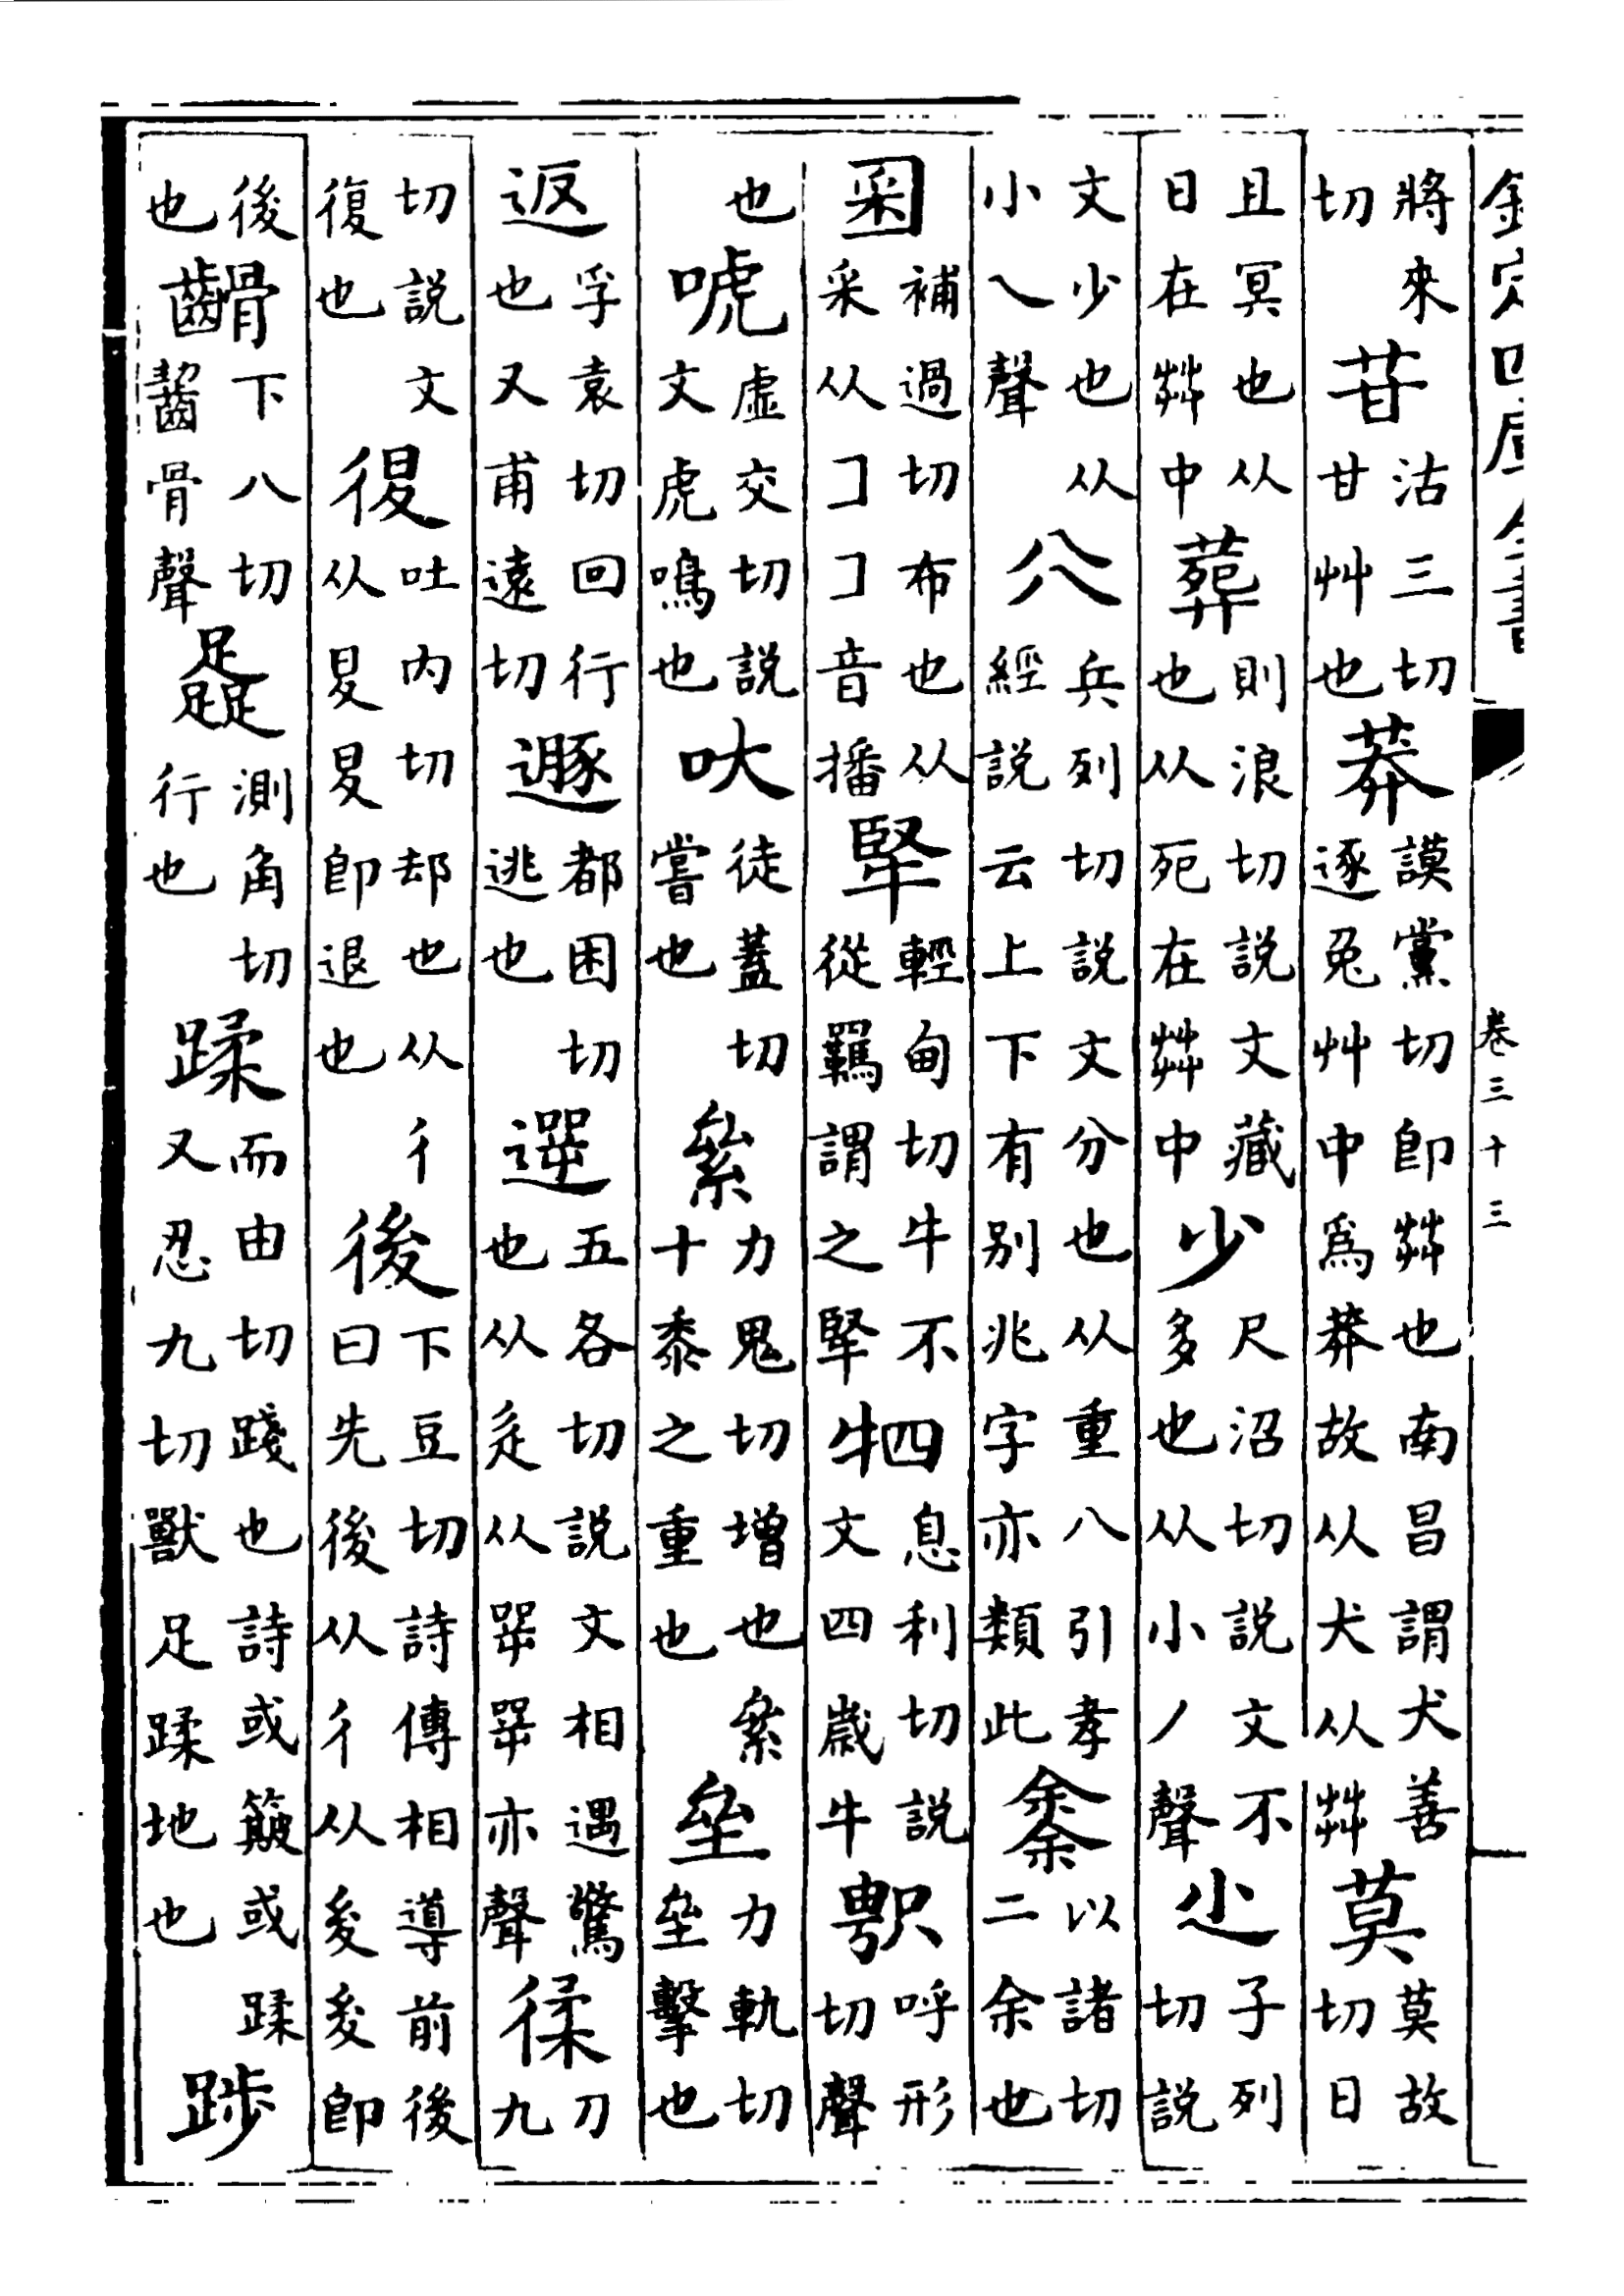 欽定四庫全書 卷三十三
將來切 苷 沽三切甘艸也 莽 謨黨切即茻也南昌謂犬善逐兔艸中爲莽故从犬从茻 莫 莫故切日
且冥也从日在茻中 葬 則浪切說文藏也从死在茻中 少 尺沼切說文不多也从小丿聲 尐 子列切說
文少也从小乀聲 𠔁 兵列切說文分也从重八引孝經說云上下有别兆字亦類此 以諸切二余也
補過切布也从釆从音播 㹂 輕甸切牛不從羈謂之㹂 牭 息利切說文四歳牛 呼形切聲
也 唬 虚交切說文虎鳴也 呔 徒蓋切嘗也 絫 力鬼切增也絫十黍之重也 垒 力軌切垒擊也
返 孚袁切回行也又甫遠切 遯 都困切逃也 遻 五各切說文相遇驚也从辵从亦聲 刀九
切說文復也 吐内切却也从彳从即退也 後 下豆切詩傳相導前後曰先後从彳从即
後也 䶝 下八切齧骨聲 測角切行也 蹂 而由切踐也詩或簸或蹂又忍九切獸足蹂地也 踄